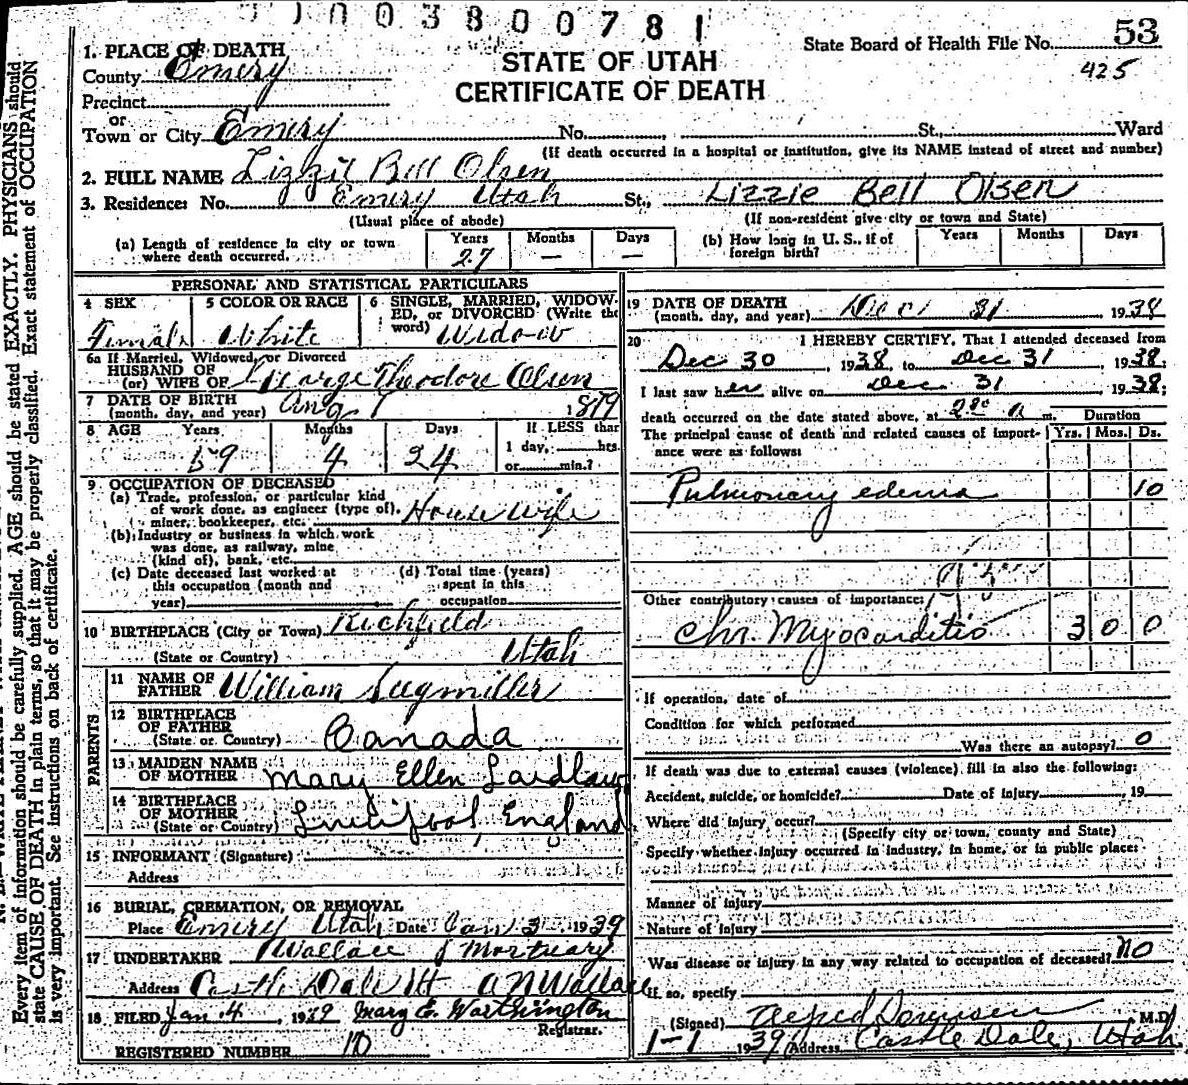 003800781
State Board of Health File No. 53
425
STATE OF UTAH
CERTIFICATE OF DEATH
1. PLACE OF DEATH
County Emery
Precinct
or
Town or City Emery No. St., Ward
(If death occurred in a hospital or institution, give its NAME instead of street and number)
2. FULL NAME Lizzie Bell Olsen
3. Residence: No. Emery Utah St., Lizzie Bell Olsen
(Usual place of abode) (If non-resident give city or town and State)
(a) Length of residence in city or town where death occurred. Years 27 Months — Days —
(b) How long in U. S., if of foreign birth? Years Months Days
PERSONAL AND STATISTICAL PARTICULARS
4 SEX Female
5 COLOR OR RACE White
6 SINGLE, MARRIED, WIDOWED, or DIVORCED (Write the word) Widow
6a If Married, Widowed, or Divorced
HUSBAND OF
(or) WIFE OF George Theodore Olsen
7 DATE OF BIRTH
(month, day, and year) Aug 7 1879
8 AGE Years 59 Months 4 Days 24 If LESS than 1 day, hrs. or min.?
9 OCCUPATION OF DECEASED
(a) Trade, profession, or particular kind of work done, as engineer (type of), miner, bookkeeper, etc. Housewife
(b) Industry or business in which work was done, as railway, mine (kind of), bank, etc.
(c) Date deceased last worked at this occupation (month and year)
(d) Total time (years) spent in this occupation
10 BIRTHPLACE (City or Town) Richfield
(State or Country) Utah
PARENTS
11 NAME OF FATHER William Seegmiller
12 BIRTHPLACE OF FATHER
(State or Country) Canada
13 MAIDEN NAME OF MOTHER Mary Ellen Laidlaw
14 BIRTHPLACE OF MOTHER
(State or Country) Liverpool England
15 INFORMANT (Signature)
Address
16 BURIAL, CREMATION, OR REMOVAL
Place Emery Utah Date Jan 3 1939
17 UNDERTAKER Wallace Mortuary
Address Castle Dale Ut A N Wallace
18 FILED Jan 4, 1939 Mary E. Worthington
Registrar.
REGISTERED NUMBER 10
19 DATE OF DEATH
(month, day, and year) Dec 31 1938
20 I HEREBY CERTIFY, That I attended deceased from
Dec 30, 1938, to Dec 31 1938;
I last saw her alive on Dec 31 1938;
death occurred on the date stated above, at 2 00 a m. Duration
The principal cause of death and related causes of importance were as follows: Yrs. Mos. Ds.
Pulmonary edema 10
Other contributory causes of importance:
Chr. Myocarditis 3 0 0
If operation, date of
Condition for which performed
Was there an autopsy? 0
If death was due to external causes (violence) fill in also the following:
Accident, suicide, or homicide? Date of injury , 19
Where did injury occur?
(Specify city or town, county and State)
Specify whether injury occurred in industry, in home, or in public place:
Manner of injury
Nature of injury
Was disease or injury in any way related to occupation of deceased? no
If so, specify
(Signed) M.D.
1-1 1939 Address Castle Dale, Utah
Every item of information should be carefully supplied. AGE should be stated EXACTLY. PHYSICIANS should
state CAUSE OF DEATH in plain terms, so that it may be properly classified. Exact statement of OCCUPATION
is very important. See instructions on back of certificate.